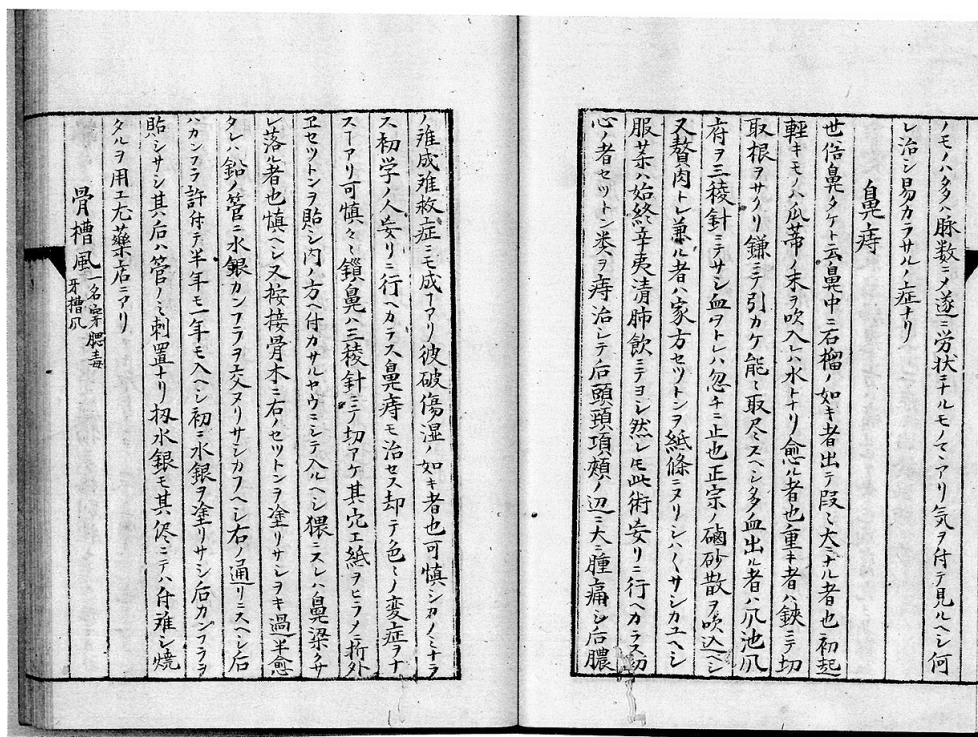 ノモノハ多ハ脉数ニメ遂ニ労状ニナルモノマヽアリ気ヲ付テ見ルヘシ何
レ治シ易カラサルノ症ナリ
鼻痔
世俗鼻タケト云鼻中ニ石榴ノ如キ者出テ段々大ニナル者也初起
軽キモノハ瓜蒂ノ末ヲ吹入レハ水トナリ愈ル者也重キ者ハ鋏ニテ切
取根ヲサクリ鎌ニテ引カケ能々取尽スヘシ多ク血出ル者ハ爪池爪
府ヲ三稜針ニテサシ血ヲトレハ忽チニ止也正宗ノ硇砂散ヲ吹込ヘシ
又贅肉トレ兼ル者ハ家方セツトンヲ紙條ニヌリシハ〱サシカユヘシ
服茶ハ始終辛夷清肺飲ニテヨシ然レモ此術妄リニ行ヘカラス
心ノ者セツトン类ヲ痔治シテ后頭頸項頰ノ辺ニ大ニ腫痛シ后膿
ノ难成难救症ニモ成ヿアリ彼破傷湿ノ如キ者也可慎シカノミナラ
ス初学ノ人妄リニ行ヘカラス鼻痔モ治セス却テ色々ノ変症ヲナ
スヿアリ可慎々々鎻鼻ハ三稜針ニテ切アケ其穴エ紙ヲヒラメニ折外
ヱセツトンヲ貼シ内ノ方ヘ付カサルヤウニシテ入ルヘシ猥ニスレハ鼻梁クサ
レ落ル者也慎ヘシ又按接骨木ニ右ノセツトンヲ塗リサシヲキ過半愈
タレハ鉛ノ管ニ水銀カンフラヲ交ヌリサシカフヘシ右ノ通リニスヘシ后
ハカンフラ許付テ半年モ一年モ入ヘシ初ニ水銀ヲ塗リサシ后カンフラヲ
貼シサシ其后ハ管ノミ刺置ナリ扨水銀モ其侭ニテハ付难シ焼
タルヲ用エ尤藥店ニアリ
骨槽風 一名穿腮毒
牙槽爪